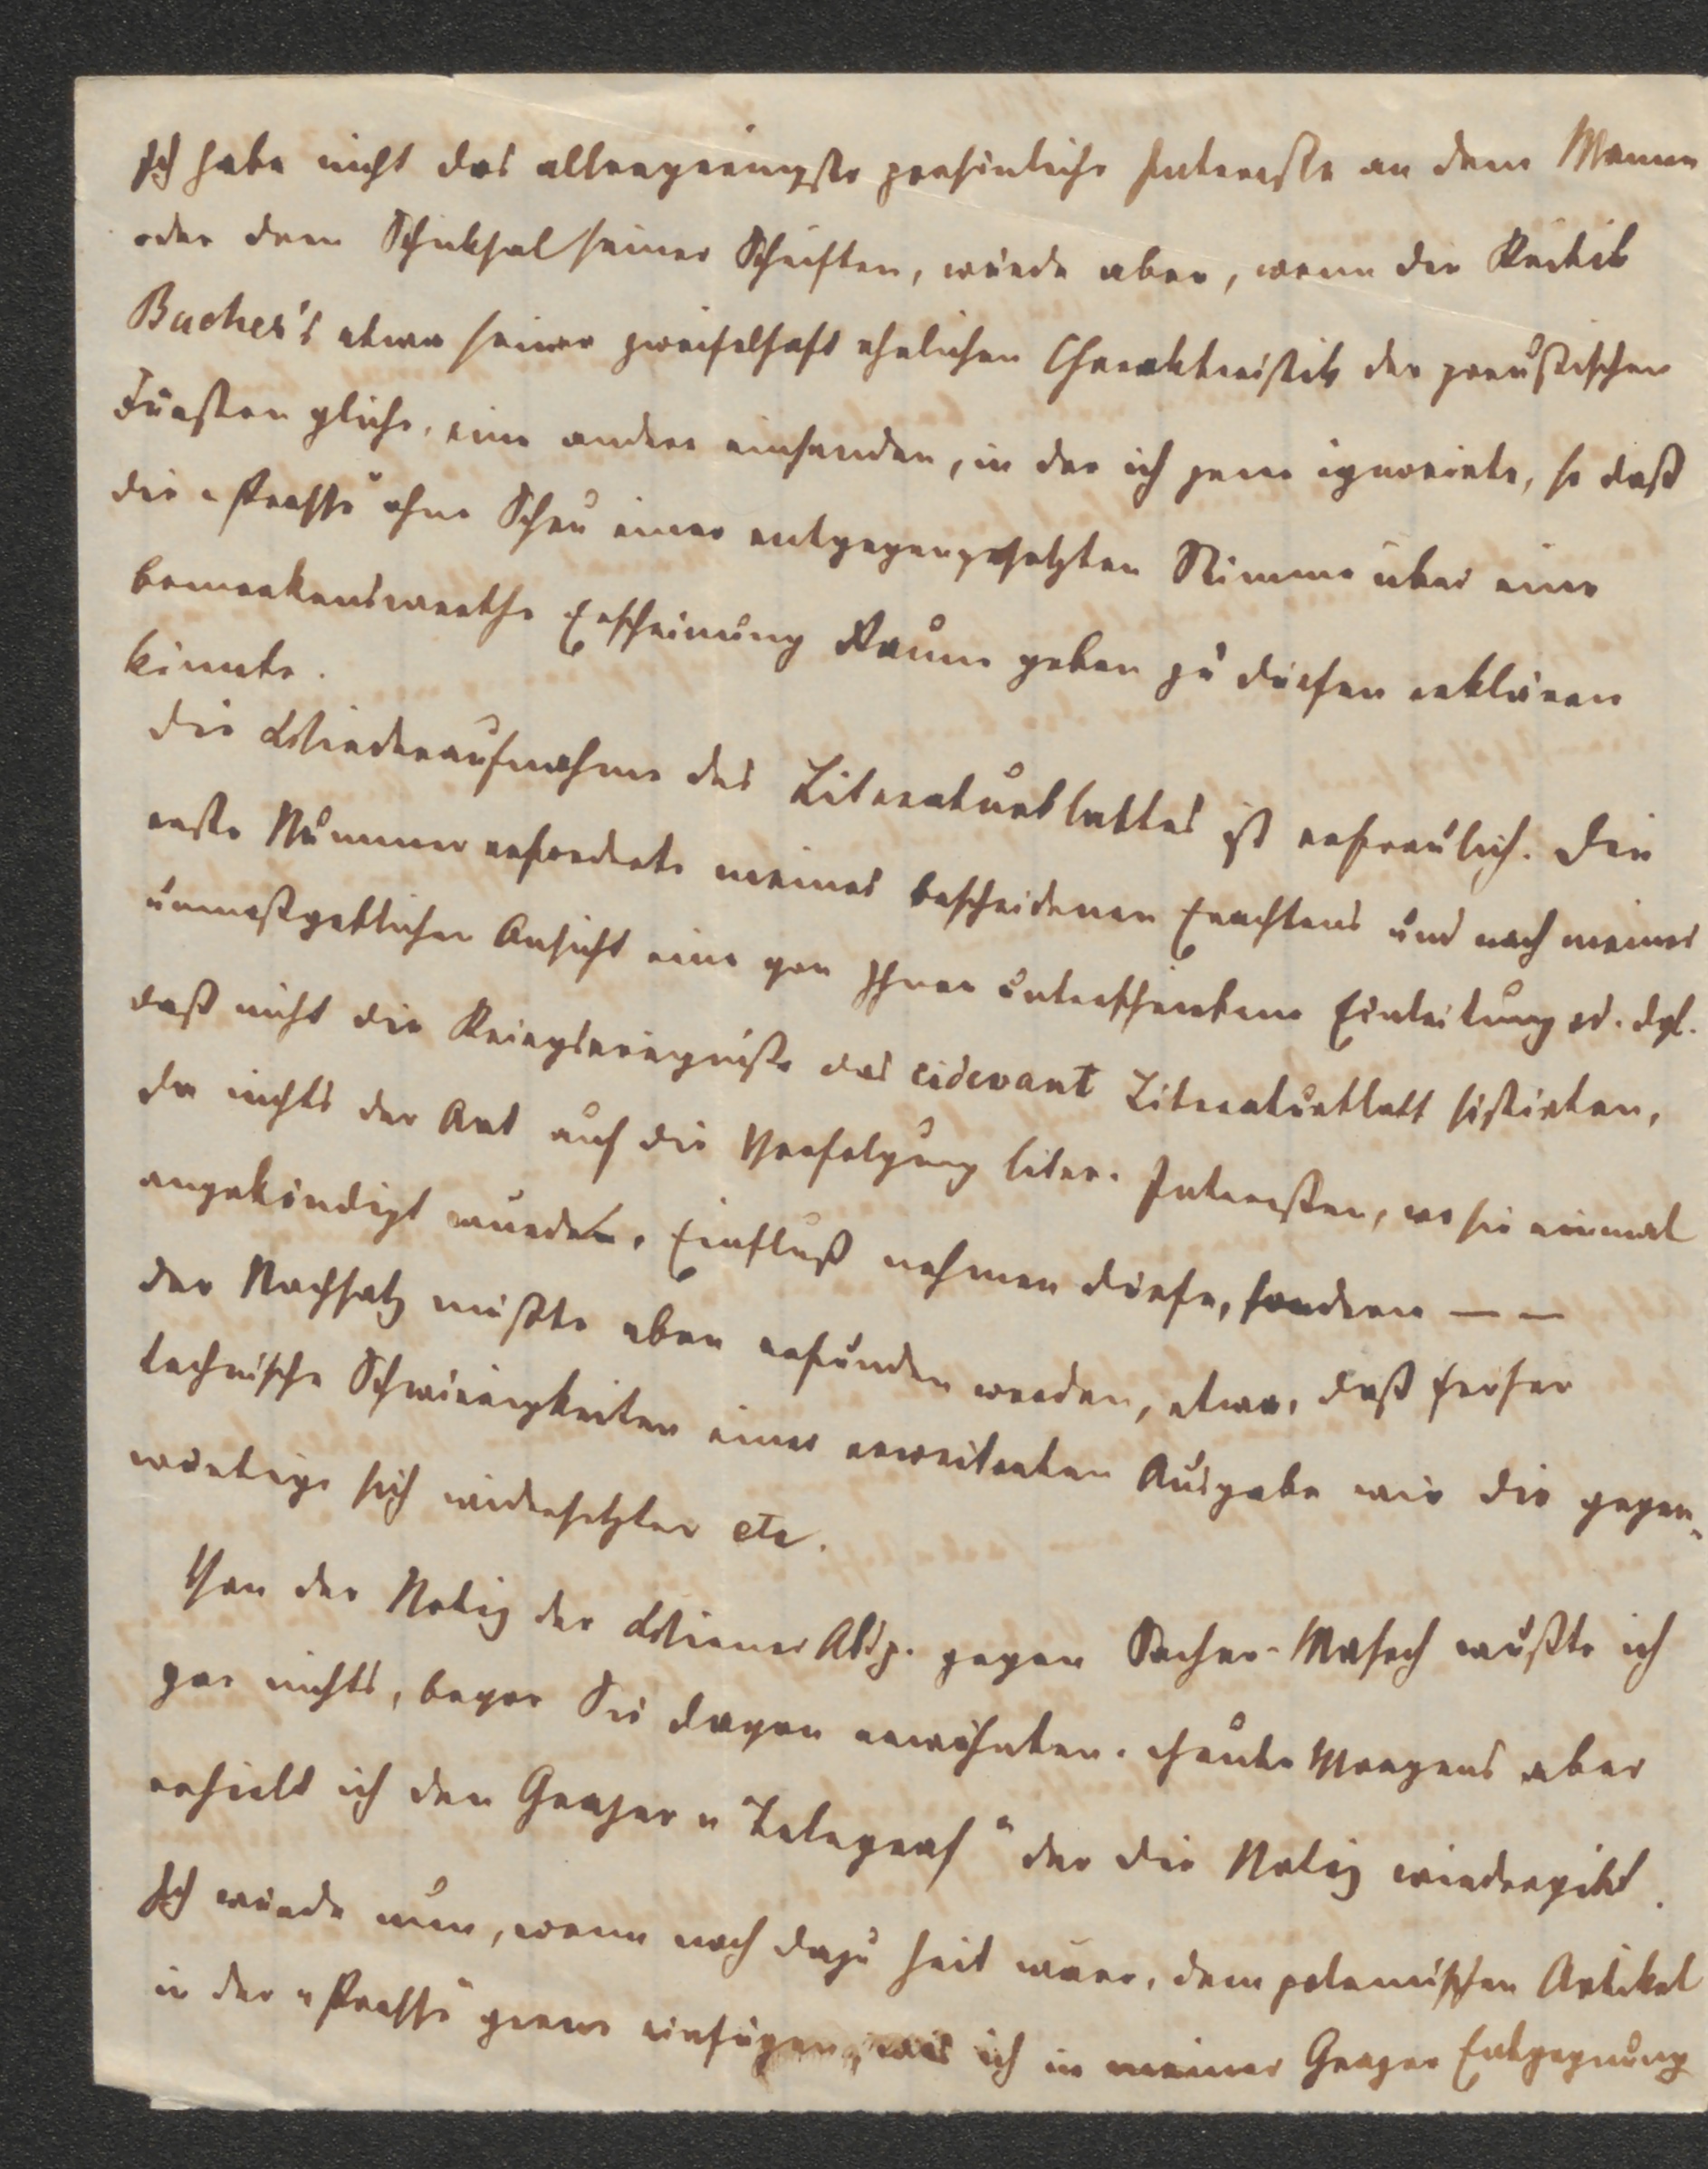 Ich habe nicht das allergeringste persönliche Interesse an dem Manne
oder dem Schicksal seiner Schriften, würde aber, wenn die Kritik
Bucher's etwa seiner zweifelhaft ehrlichen Charakteristik der preußischen
Fürsten gliche, eine andere einsenden, in der ich jene ignorirte, so daß
die „Presse" ohne Scheu einer entgegengesetzten Stimme über eine
bemerkenswerthe Erscheinung Raum geben zu dürfen erklären
könnte.
Die Wiederaufnahme des Literaturblattes ist erfreulich. Die
erste Nummer erforderte meines bescheidenen Erachtens und nach meiner
unmaßgeblichen Ansicht eine von Ihnen unterschriebene Einleitung od. dgl.
daß nicht die Kriegsereigniße das cidevant Literaturblatt sistirten,
da nichts der Art auf die Verfolgung liter. Interessen, wo sie einmal
angekündigt wurden, Einfluß nehmen dürfe, sondern — —
der Nachsatz müßte eben erfunden werden, etwa, daß
technische Schwierigkeiten einer erweiterten Ausgabe wie die gegen-
wärtige sich widersetzten etc.
Von der Notiz der Wiener Abdp. gegen Sacher-Masoch wußte ich
gar nichts, bevor Sie davon erwähnten. Heute Morgens aber
erhielt ich den Grazer „Telegraf" der die Notiz wiedergibt.
Ich würde nun, wenn noch dazu Zeit wäre, dem polemischen Artikel
in der „Presse" gerne einfügen, was ich in meiner Grazer Entgegnung